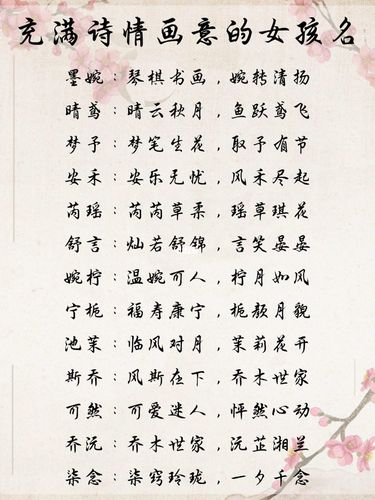 充满诗情画意的女孩名
墨婉：琴棋书画，婉转清扬
晴鸢：晴云秋月，鱼跃鸢飞
梦予：梦笔生花，取予有节
安禾：安乐无忧，风禾尽起
芮瑶：芮芮草柔，瑶草琪花
舒言：灿若舒锦，言笑晏晏
婉柠：温婉可人，柠月如风
宁栀：福寿康宁，栀颜月貌
池茉：临风对月，茉莉花开
斯乔：风斯在下，乔木世家
可然：可爱迷人，怦然心动
乔沅：乔木世家，沅芷湘兰
柒念：柒窍玲珑，一夕千念